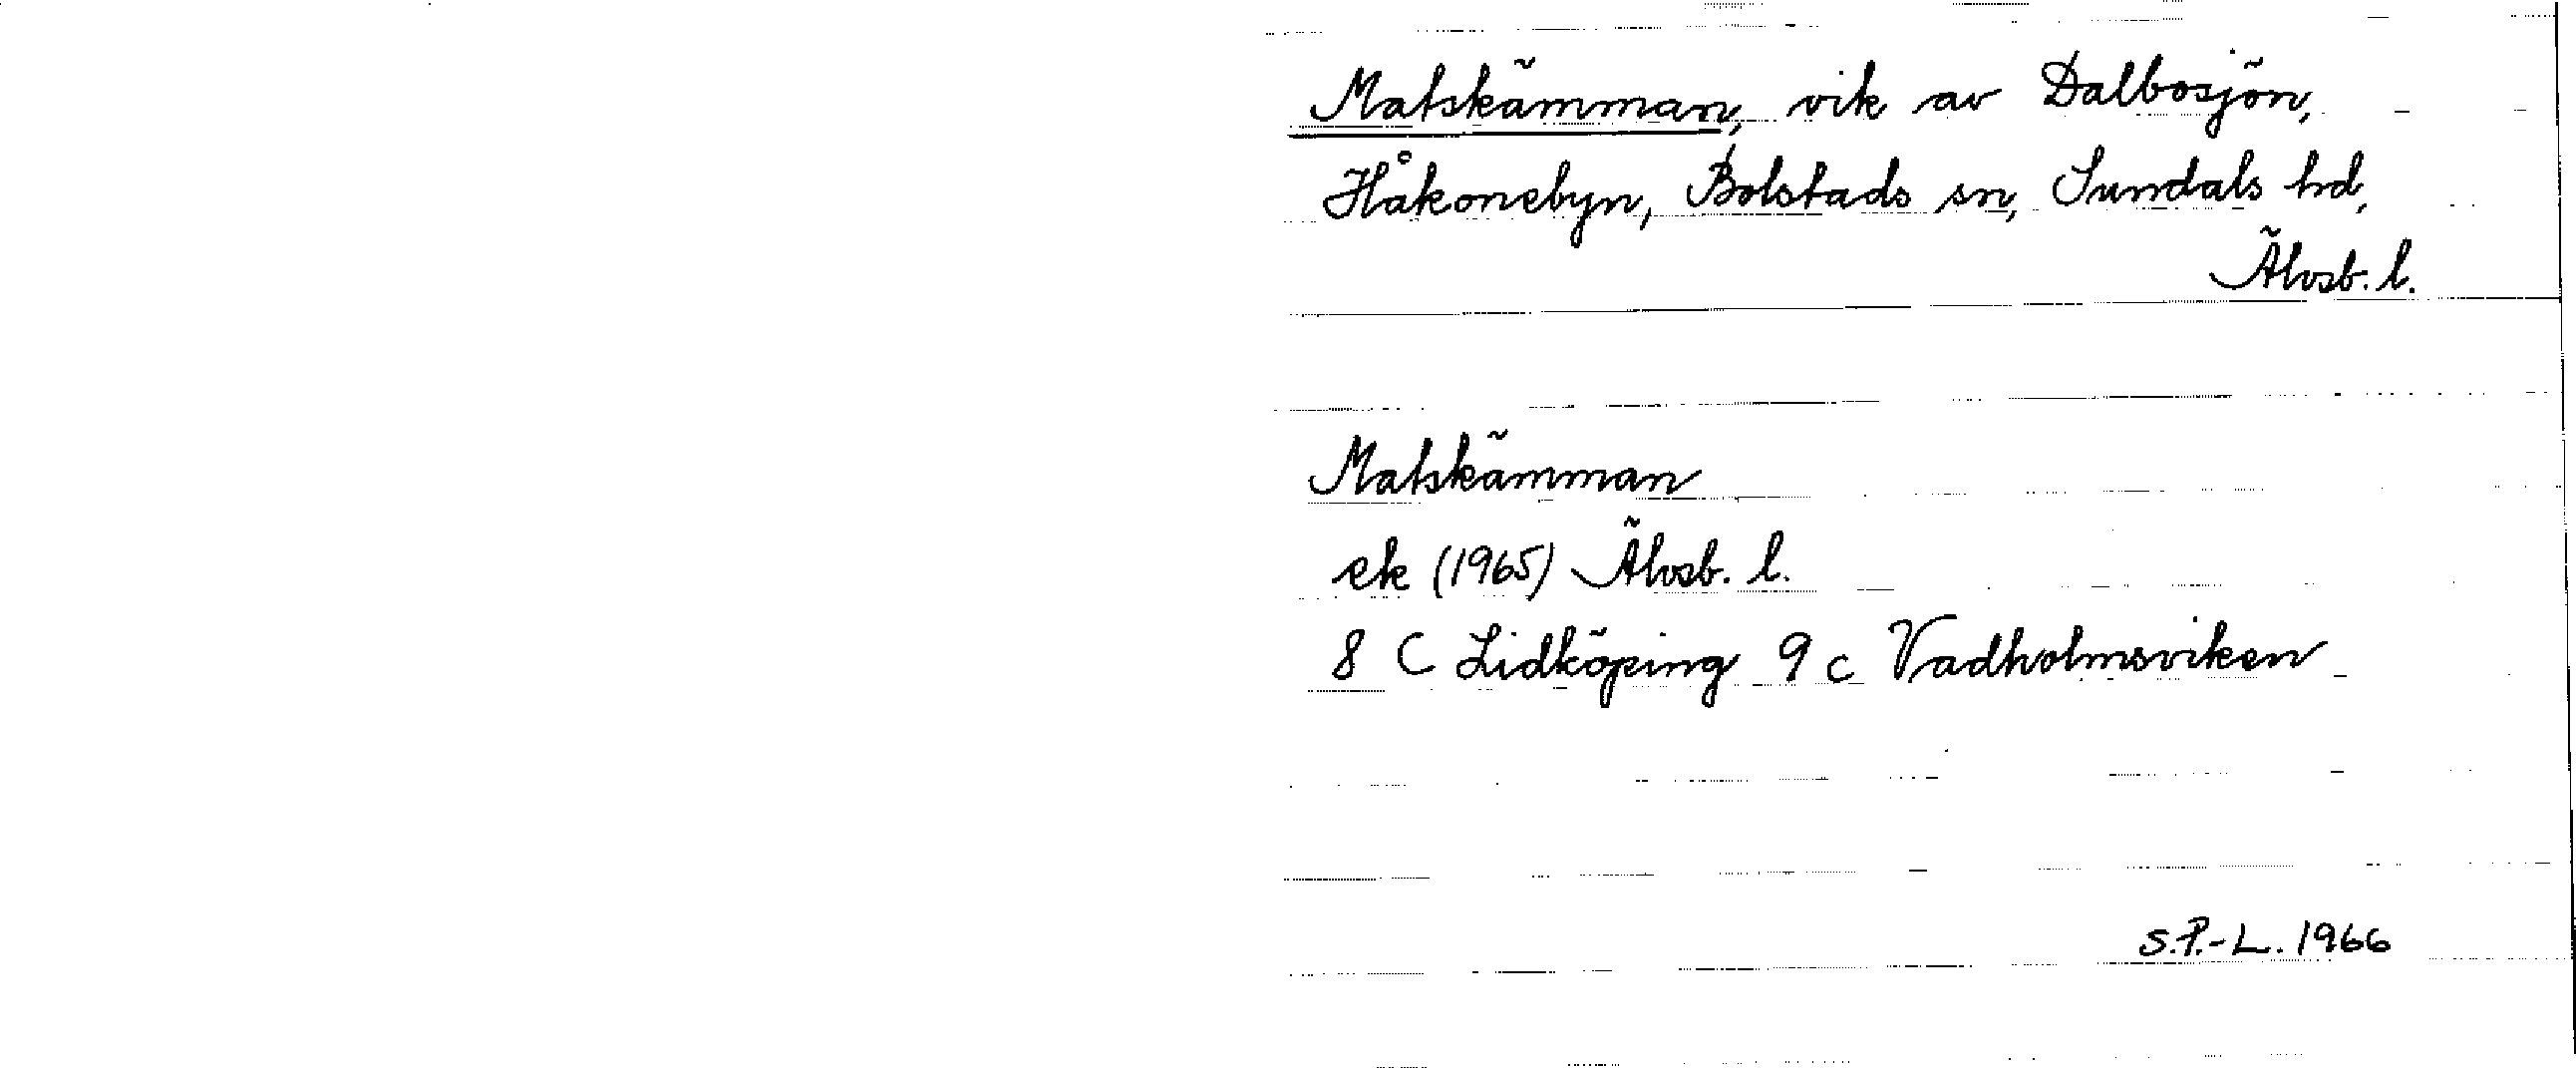 Matskämman, vik av Dalbosjön,
Håkonebyn, Bolstads sn, Sundals hd,
Älvsb. l.
Matskämman
ek (1965) Älvsb. l.
8 C Lidköping 9 c Vadholmsviken
S.P.-L. 1966